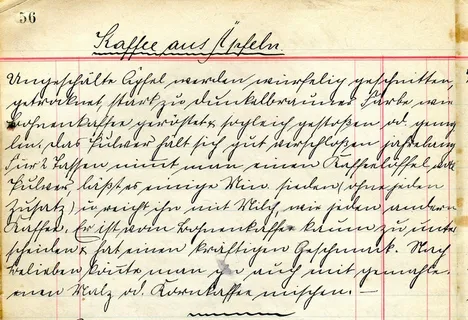 56
Kaffee aus Äpfeln
Ungeschälte Äpfel werden würfelig geschnitten,
getrocknet, stark zu dunkelbrauner Farbe wie
Bohnenkaffee geröstet & sogleich gestoßen od. gemah
len. Das Pulver hält sich gut verschloßen jahrelang
Für 2 Tassen nimt man einen Kaffeelöffel voll
Pulver läßt es einige Min. sieden (ohne jeden
Zusatz) u. reicht ihn mit Milch, wie jeden andern
Kaffee. Er ist vom Bohnenkaffee kaum zu unter
scheiden & hat einen kräftigen Geschmack. Nach
Belieben könte man ihn auch mit gemahle
enen Malz od. Kornkaffee mischen. —